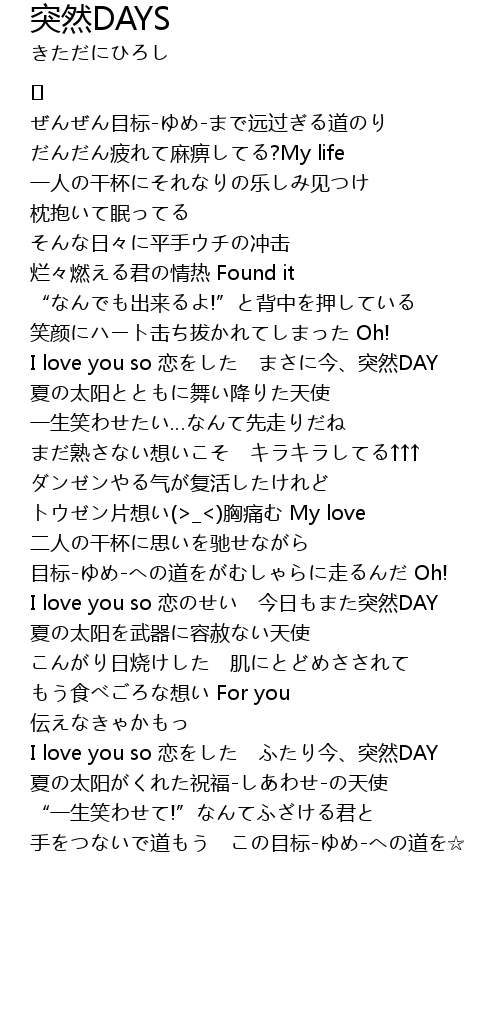 突然DAYS
きただにひろし
[]
ぜんぜん目标-ゆめ-まで远过ぎる道のり
だんだん疲れて麻痹してる?My life
一人の干杯にそれなりの乐しみ见つけ
枕抱いて眠ってる
そんな日々に平手ウチの冲击
烂々燃える君の情热 Found it
“なんでも出来るよ!”と背中を押している
笑颜にハート击ち拔かれてしまった Oh!
I love you so 恋をした　まさに今、突然DAY
夏の太阳とともに舞い降りた天使
一生笑わせたい...なんて先走りだね
まだ熟さない想いこそ　キラキラしてる↑↑↑
ダンゼンやる气が复活したけれど
トウゼン片想い(>_<)胸痛む My love
二人の干杯に思いを驰せながら
目标-ゆめ-への道をがむしゃらに走るんだ Oh!
I love you so 恋のせい　今日もまた突然DAY
夏の太阳を武器に容赦ない天使
こんがり日烧けした　肌にとどめさされて
もう食べごろな想い For you
伝えなきゃかもっ
I love you so 恋をした　ふたり今、突然DAY
夏の太阳がくれた祝福-しあわせ-の天使
“一生笑わせて!”なんてふざける君と
手をつないで道もう　この目标-ゆめ-への道を☆